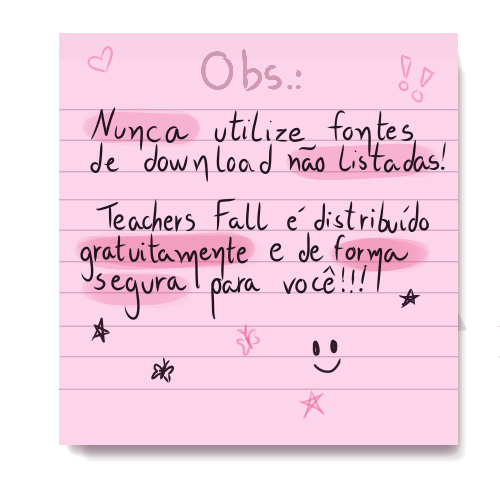 Obs.:
Nunca utilize fontes
de download não listadas!
Teachers Fall é distribuído
gratuitamente e de forma
segura para você!!!